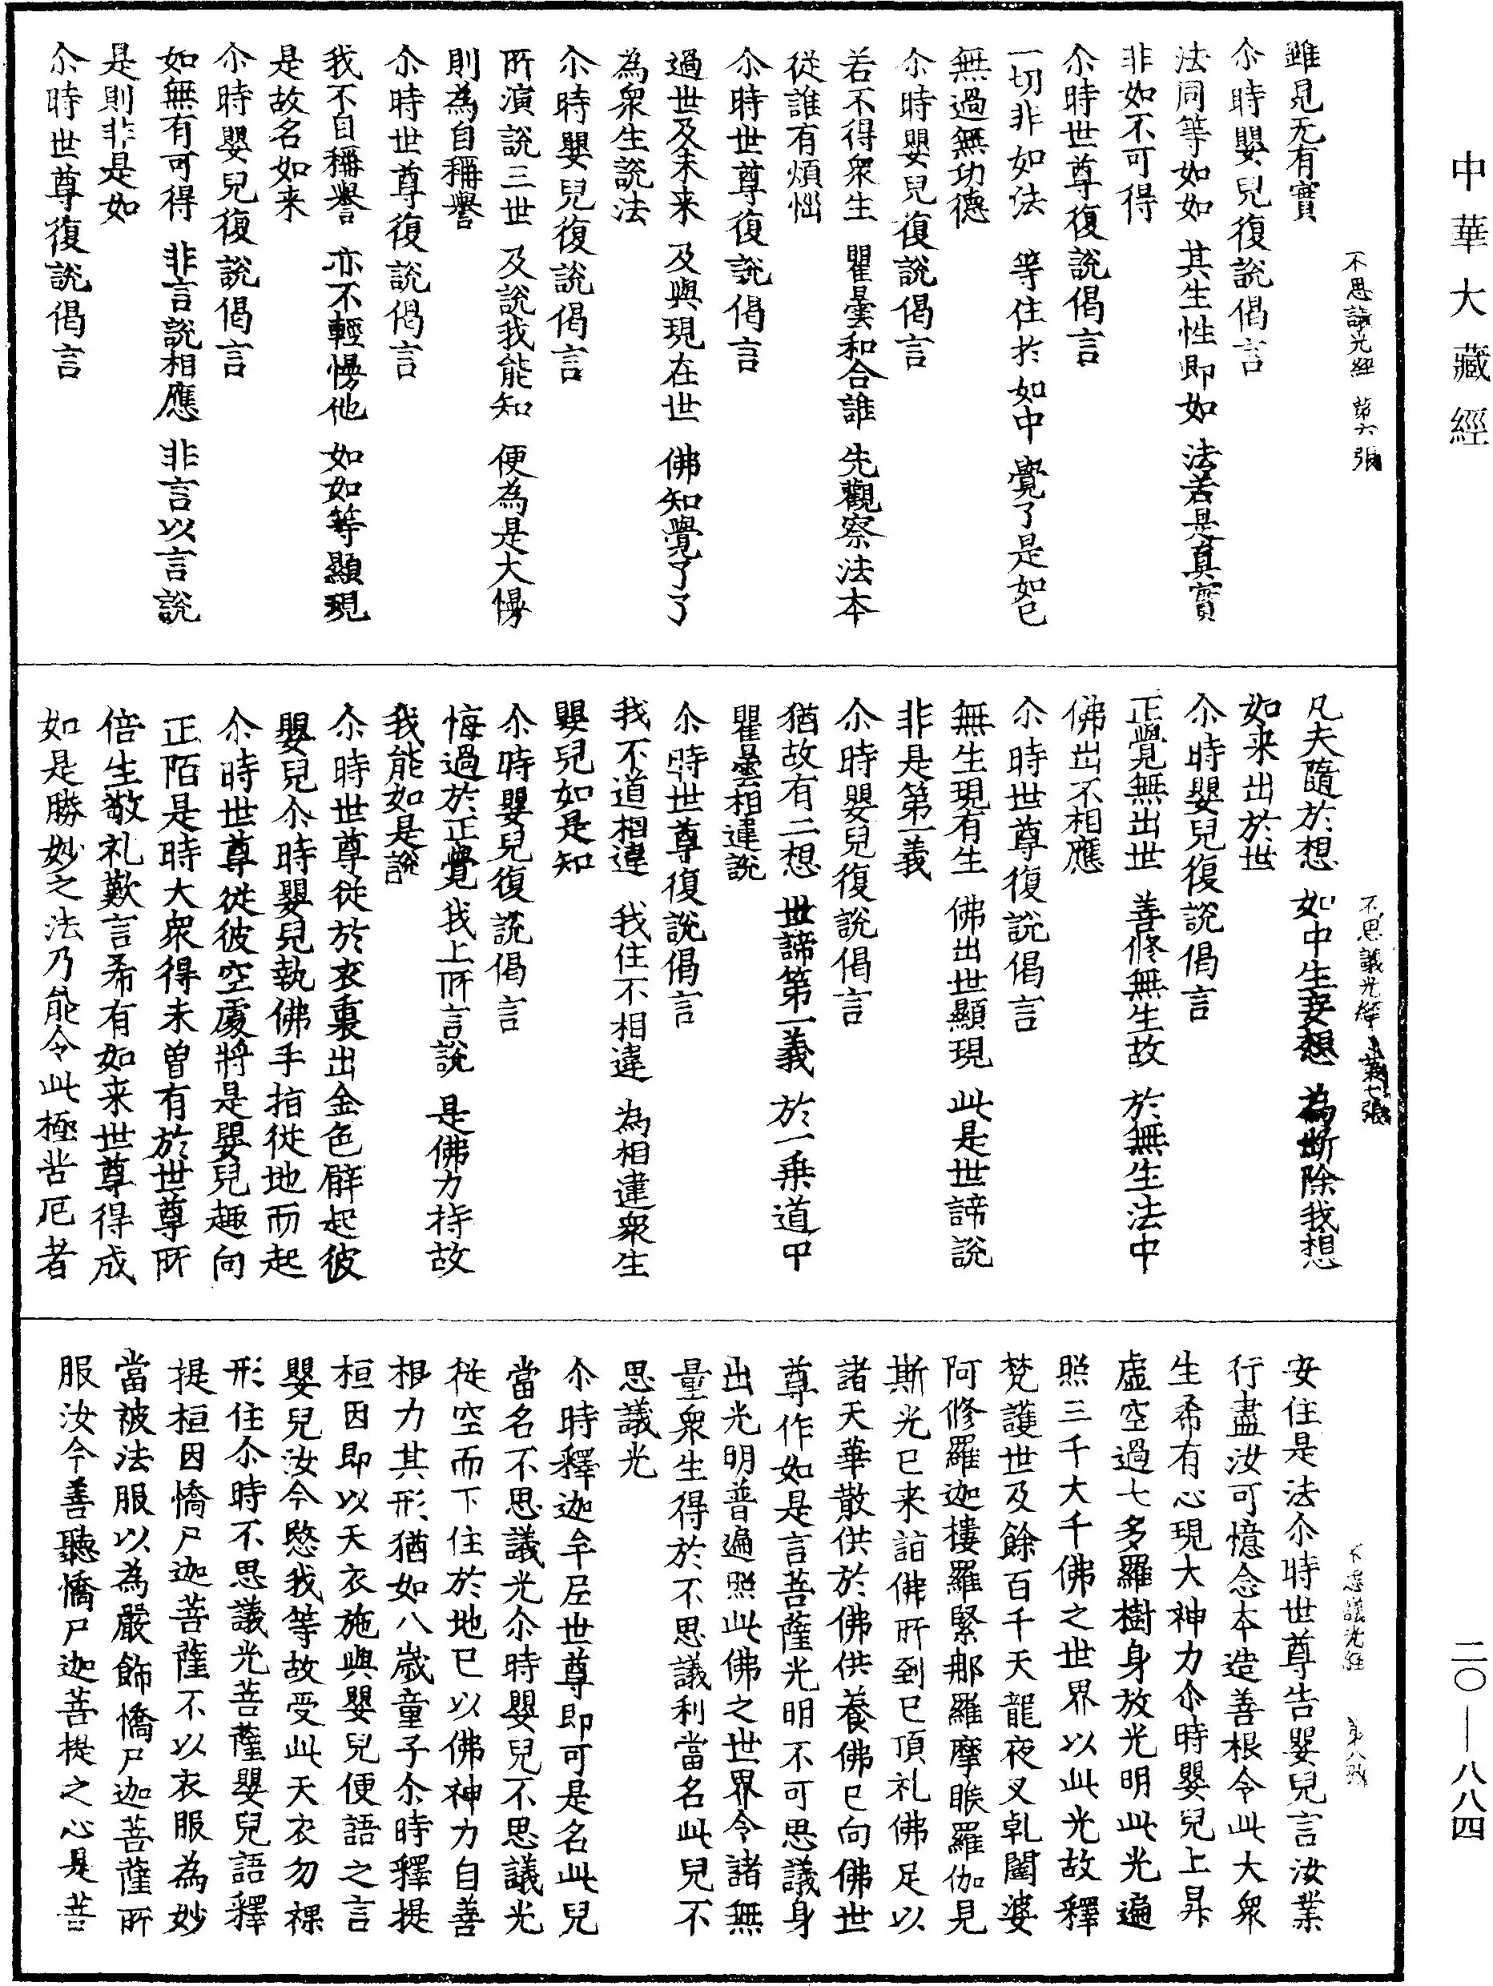 中華大藏經
不思議光經 第六張
雖見无有實
尒時嬰兒復說偈言
法同等如如 其生性即如 法若是真實
非如不可得
尒時世尊復說偈言
一切非如法 等住於如中 覺了是如已
無過無功德
尒時嬰兒復說偈言
若不得眾生 瞿曇和合誰 先觀察法本
從誰有煩惱
尒時世尊復說偈言
過世及未来 及與現在世 佛知覺了了
為眾生說法
尒時嬰兒復說偈言
所演說三世 及說我能知 便為是大慢
則為自稱譽
尒時世尊復說偈言
我不自稱譽 亦不輕慢他 如如等顯現
是故名如来
尒時嬰兒復說偈言
如無有可得 非言說相應 非言以言說
是則非是如
尒時世尊復說偈言
不思議光經 第七張
凡夫隨於想 如中生妄想 為斷除我想
如来出於世
尒時嬰兒復說偈言
正覺無出世 善修無生故 於無生法中
佛出不相應
尒時世尊復說偈言
無生現有生 佛出世顯現 此是世諦說
非是第一義
尒時嬰兒復說偈言
猶故有二想 世諦第一義 於一乗道中
瞿曇相違說
尒時世尊復說偈言
我不道相違 我住不相違 為相違眾生
嬰兒如是知
尒時嬰兒復說偈言
悔過於正覺 我上所言說 是佛力持故
我能如是說
尒時世尊従於衣裏出金色臂起彼
嬰兒尒時嬰兒執佛手指従地而起
尒時世尊従彼空處將是嬰兒趣向
正陌是時大眾得未曾有於世尊所
倍生敬礼歎言希有如来世尊得成
如是勝妙之法乃能令此極苦厄者
不思議光經 第八張
安住是法尒時世尊告嬰兒言汝業
行盡汝可憶念本造善根令此大眾
生希有心現大神力尒時嬰兒上昇
虛空過七多羅樹身放光明此光遍
照三千大千佛之世界以此光故釋
梵護世及餘百千天龍夜叉乹闥婆
阿修羅迦樓羅緊那羅摩睺羅伽見
斯光已来詣佛所到已頂礼佛足以
諸天華散供於佛供養佛已向佛世
尊作如是言菩薩光明不可思議身
出光明普遍照此佛之世界令諸無
量眾生得於不思議利當名此兒不
思議光
尒時釋迦牟尼世尊即可是名此兒
當名不思議光尒時嬰兒不思議光
従空而下住於地已以佛神力自善
根力其形猶如八歲童子尒時釋提
桓因即以天衣施與嬰兒便語之言
嬰兒汝今愍我等故受此天衣勿裸
形住尒時不思議光菩薩嬰兒語釋
提桓因憍尸迦菩薩不以衣服為妙
當被法服以為嚴飾憍尸迦菩薩所
服汝今善聽憍尸迦菩提之心是菩
二〇—八八四